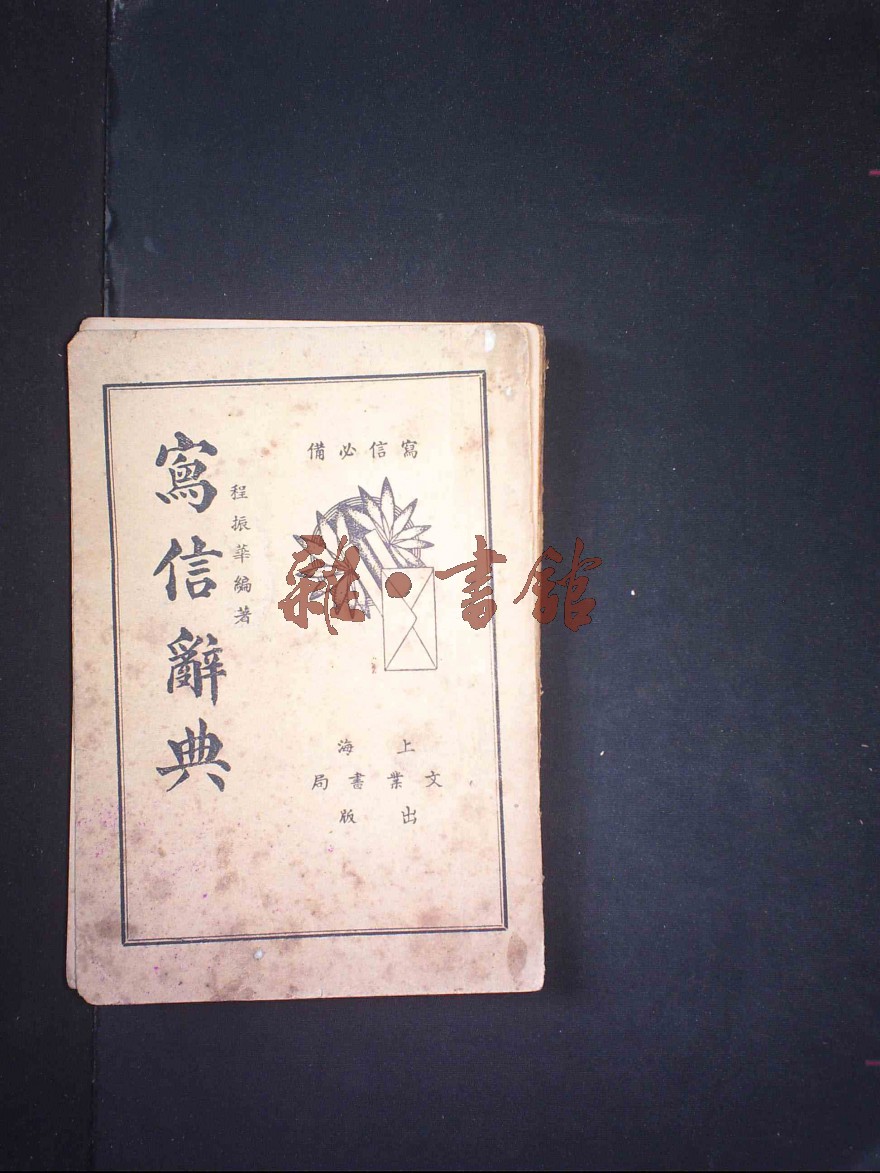 寫信必備
程振華編著
寫信辭典
上海
文業書局
出版
雜·書館